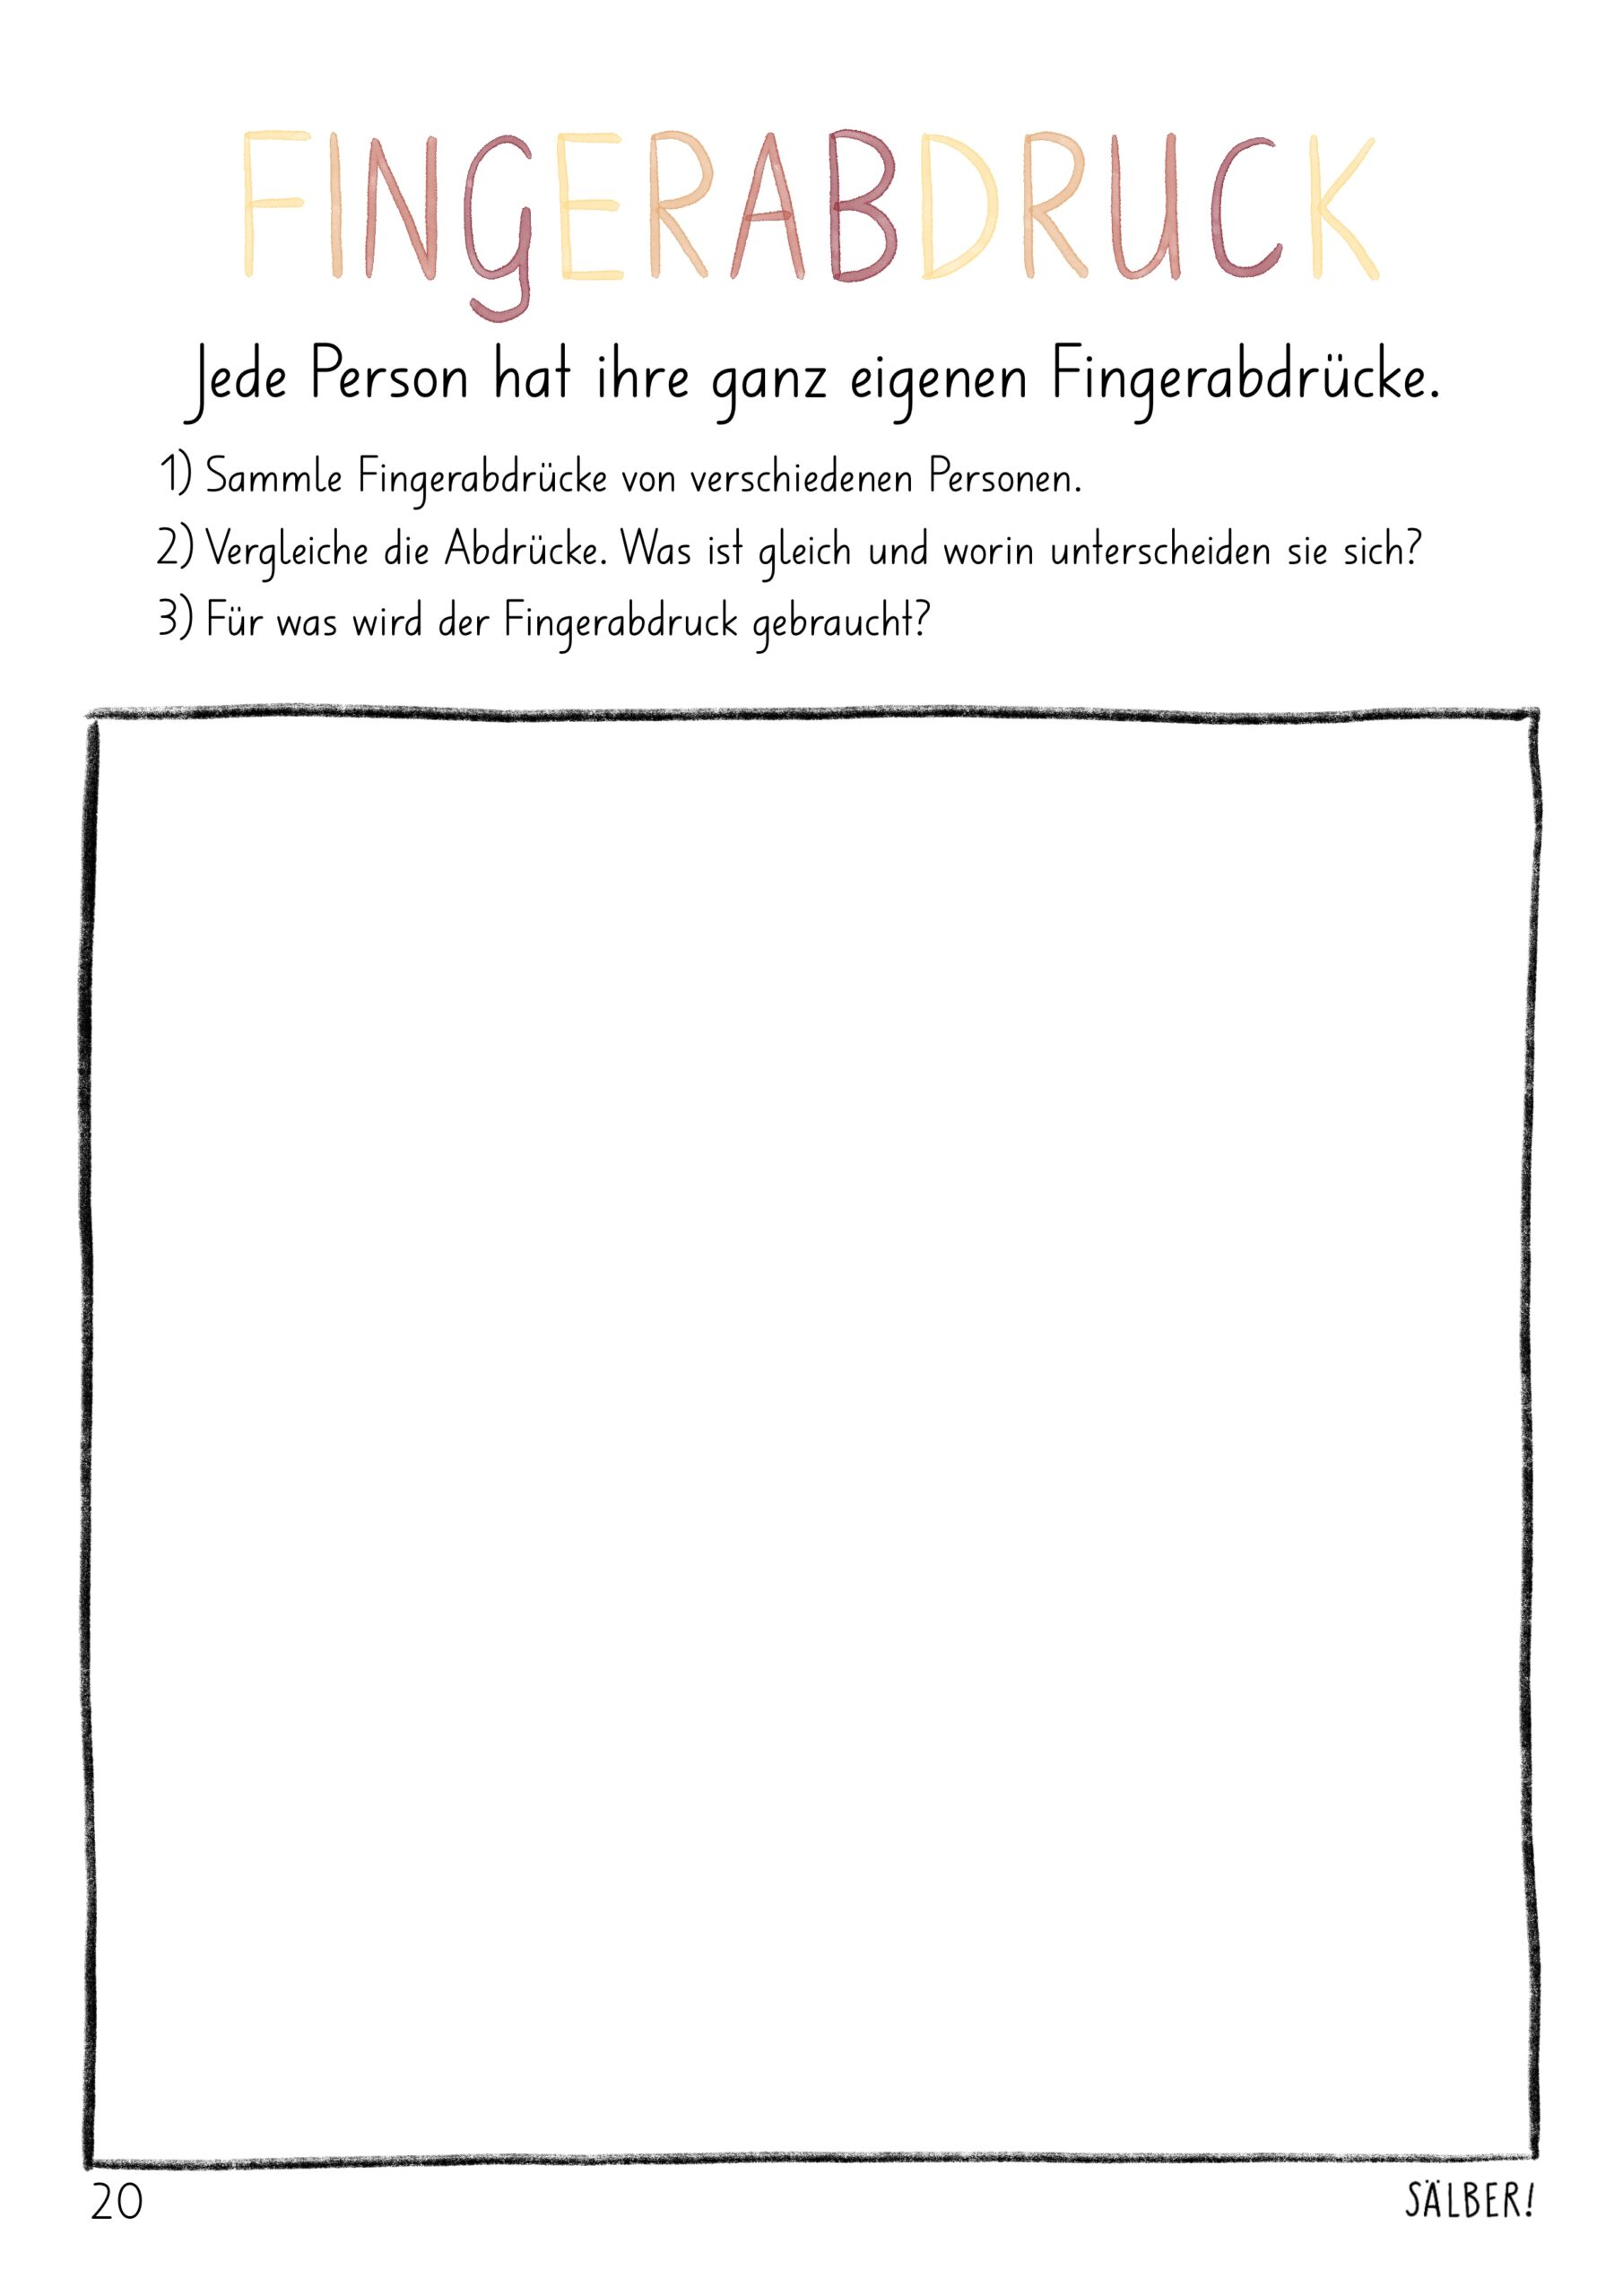 FINGERABDRUCK
Jede Person hat ihre ganz eigenen Fingerabdrücke.
1) Sammle Fingerabdrücke von verschiedenen Personen.
2) Vergleiche die Abdrücke. Was ist gleich und worin unterscheiden sie sich?
3) Für was wird der Fingerabdruck gebraucht?
20
SÄLBER!